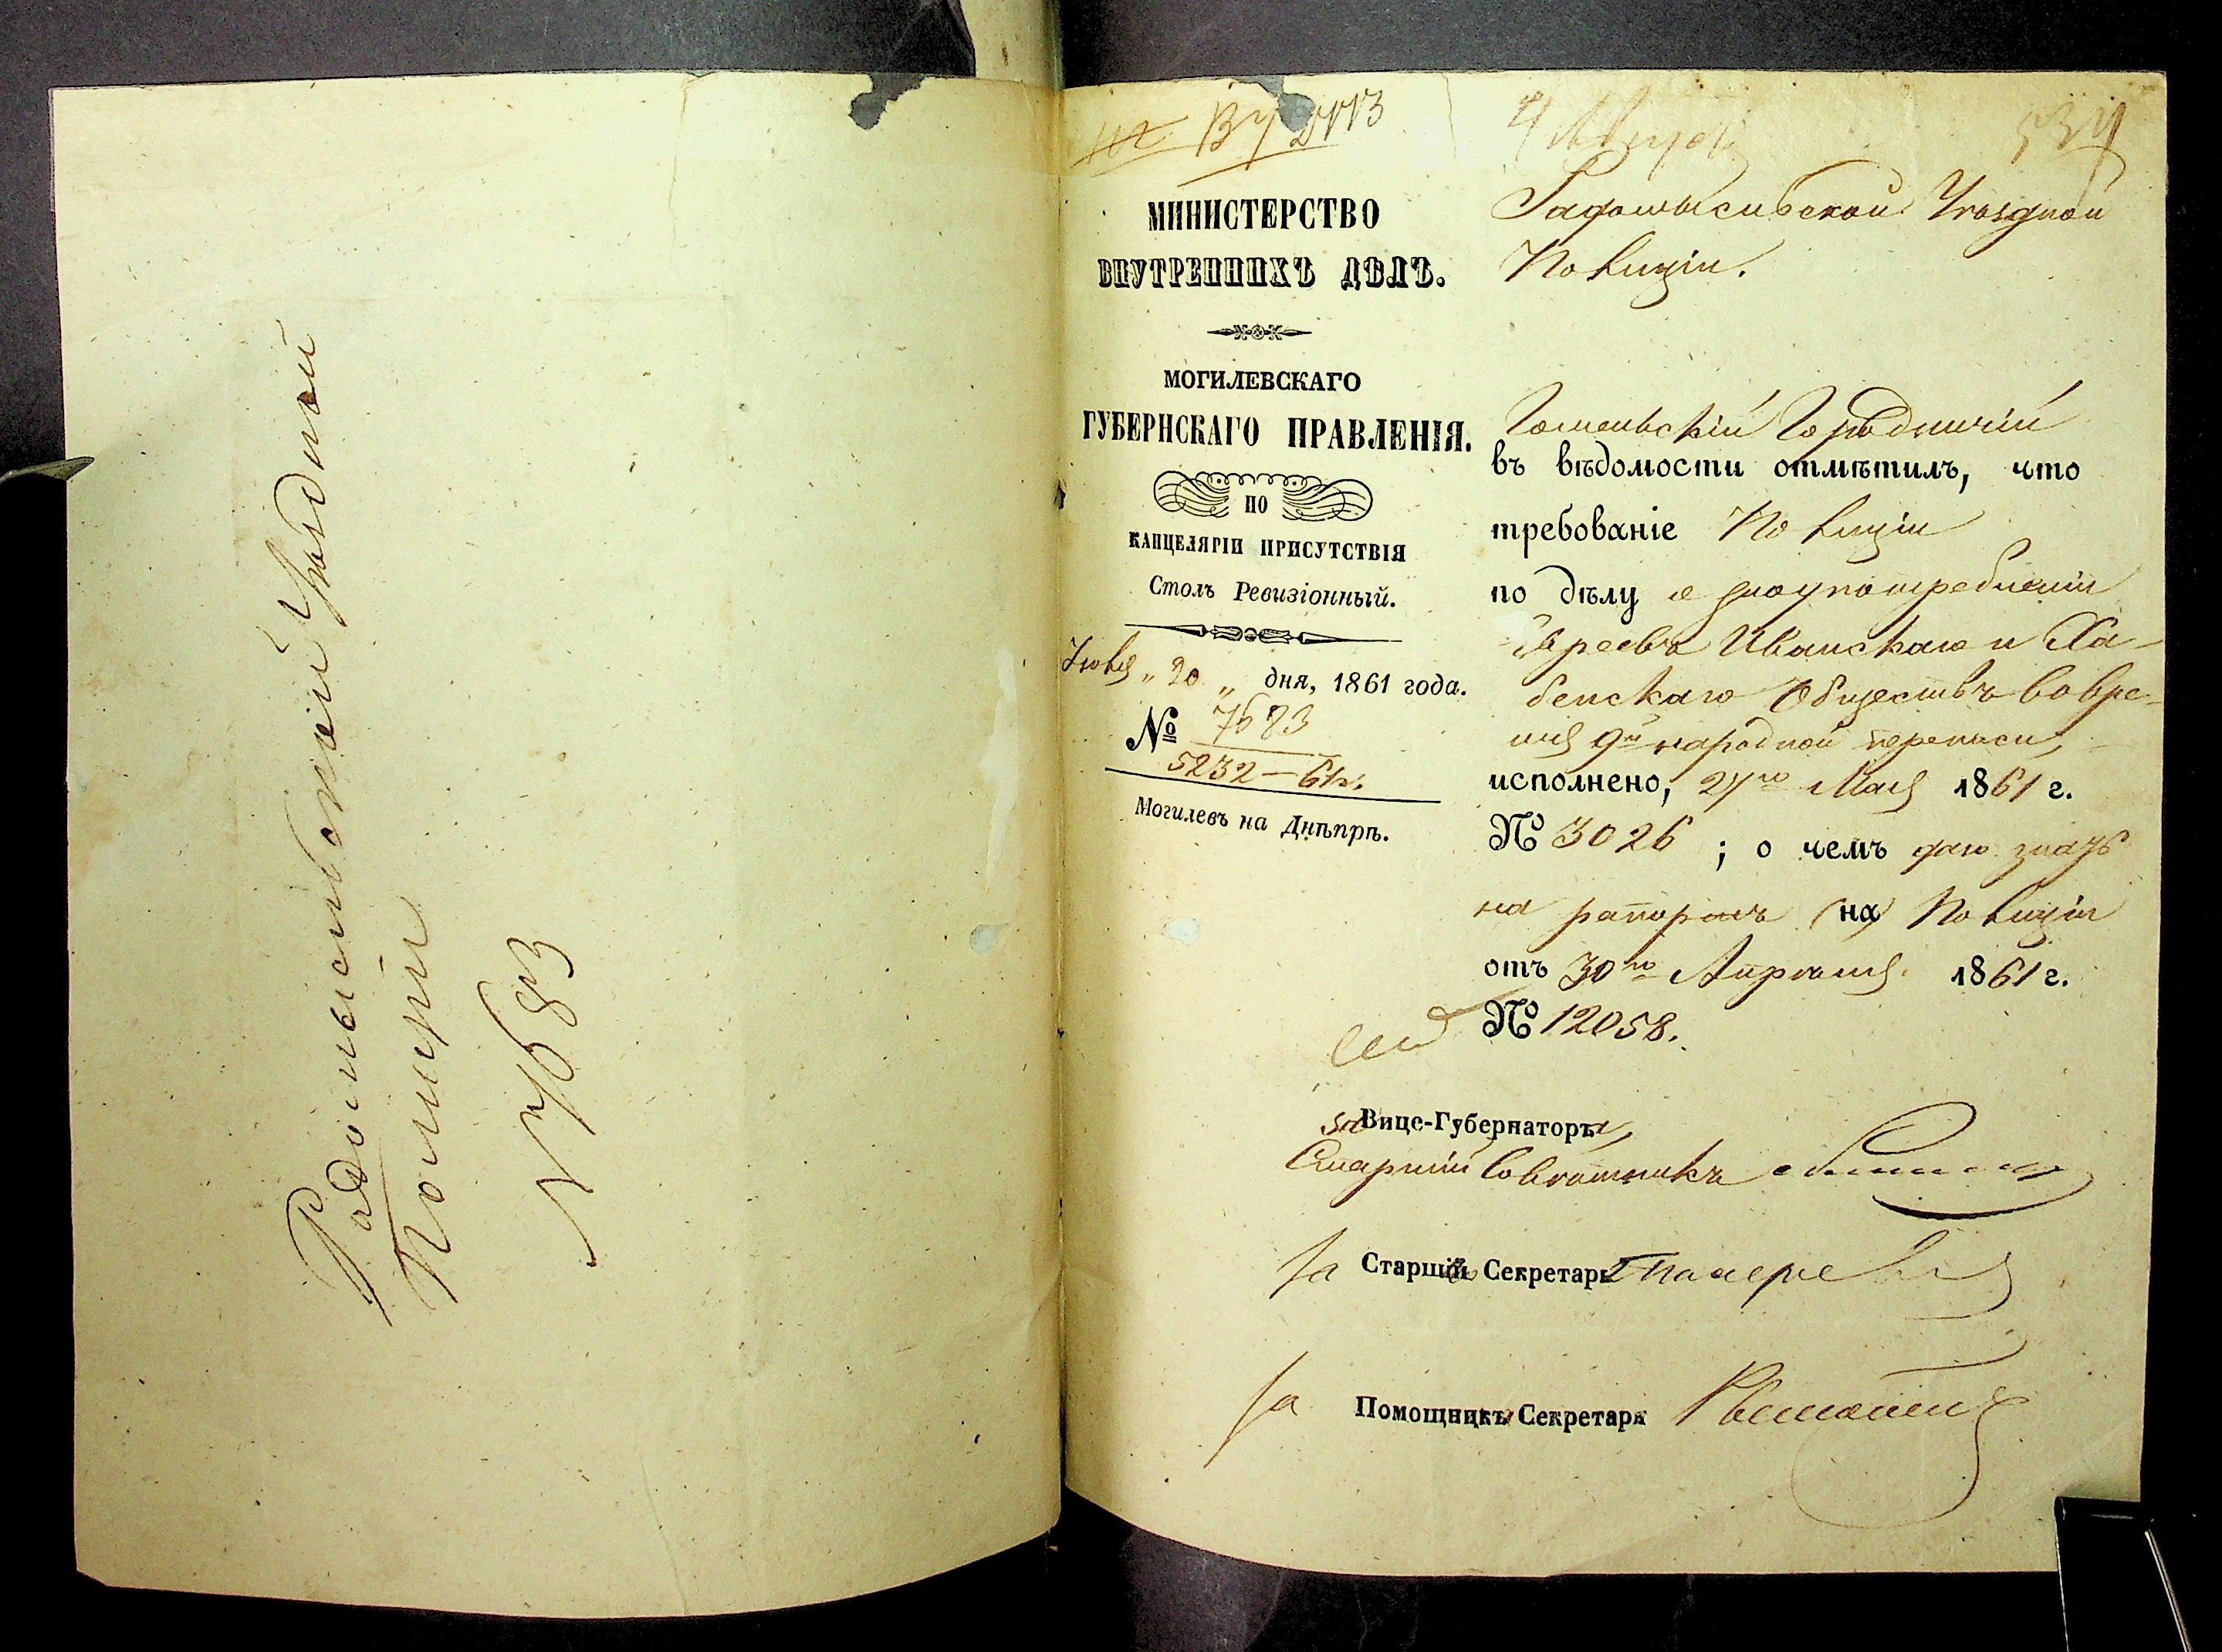 Радомысльской Уѣздной
Полиціи
№ 7683
МИНИСТЕРСТВО
ВНУТРЕННИХЪ ДѢЛЪ.
МОГИЛЕВСКАГО
ГУБЕРНСКАГО ПРАВЛЕНІЯ.
ПО
КАНЦЕЛЯРІИ ПРИСУТСТВІЯ
Столъ Ревизіонный.
Іюля „ 20 „ дня, 1861 года.
№ 7683
5232 — 61
Могилевъ на Днѣпрѣ.
4 Август
534
Радомысльской Уѣздной
Полиціи.
Гомельскій Городничій
въ вѣдомости отмѣтилъ, что
требованіе Полиціи
по дѣлу о злоупотребленіи
Евреевъ Иванскаго и Ха-
бенскаго Обществъ во вре-
мя 9й народной переписи
исполнено, 27го Мая 1861 г.
№ 3026 ; о чемъ даю знать
на рапортъ (на) Полиціи
отъ 30го Апрѣля 1861 г.
№ 12058.
за Вице-Губернатора,
Старшій Совѣтникъ
За Старшій Секретарь
За Помощникъ Секретаря